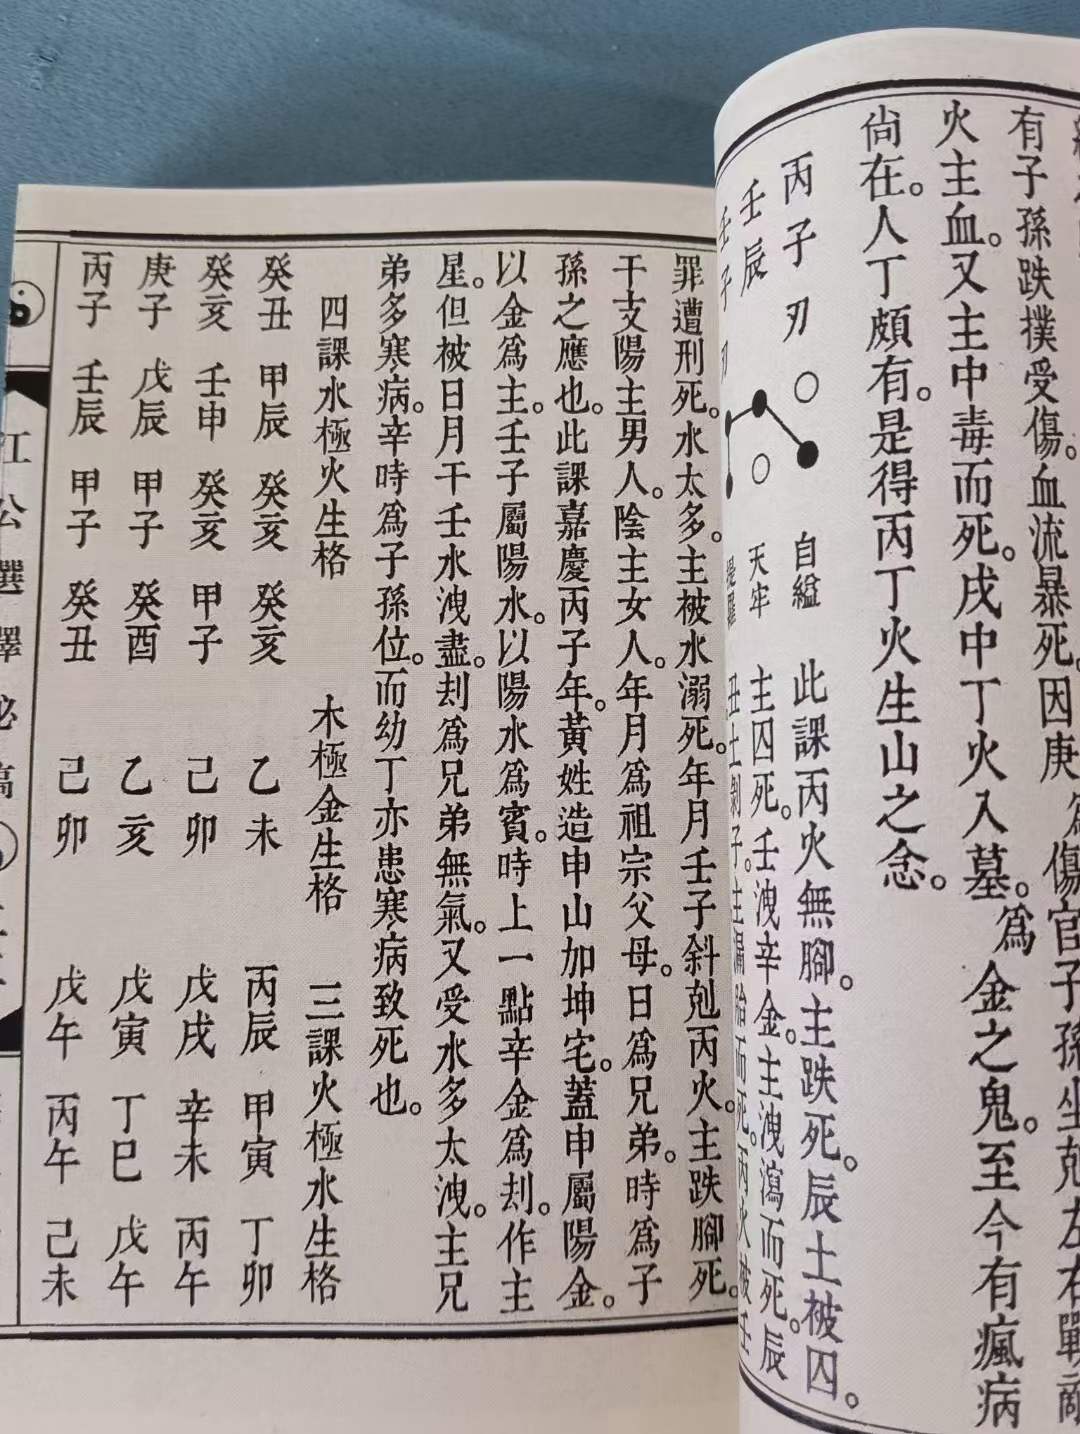 有子孫跌撲受傷。血流暴死。因庚為傷官子孫坐剋左右戰敵
火主血。又主中毒而死。戌中丁火入墓。為金之鬼。至今有瘋病
尙在。人丁頗有。是得丙丁火生山之念。
丙子刃 自縊 此課丙火無腳。主跌死。辰土被四。
壬辰 天牢 主四死。壬洩辛金。主洩瀉而死。辰
壬子刃
罪遭刑死。水太多。主被水溺死。年月壬子斜剋丙火。主跌腳死。
干支陽主男人。陰主女人。年月為祖宗父母。日為兄弟。時為子
孫之應也。此課嘉慶丙子年。黃姓造申山加坤宅。蓋申屬陽金。
以金為主。壬子屬陽水。以陽水為賓。時上一點辛金為刦。作主
星。但被日月干壬水洩盡。刦為兄弟無氣。又受水多太洩。主兄
弟多寒病。辛時為子孫位。而幼丁亦患寒病致死也。
四課水極火生格 木極金生格 三課火極水生格
癸丑 甲辰 癸亥 癸亥 乙未 丙辰 甲寅 丁卯
癸亥 壬申 癸亥 甲子 己卯 戊戌 辛未 丙午
庚子 戊辰 甲子 癸酉 乙亥 戊寅 丁巳 戊午
丙子 壬辰 甲子 癸丑 己卯 戊午 丙午 己未
江公選擇祕高